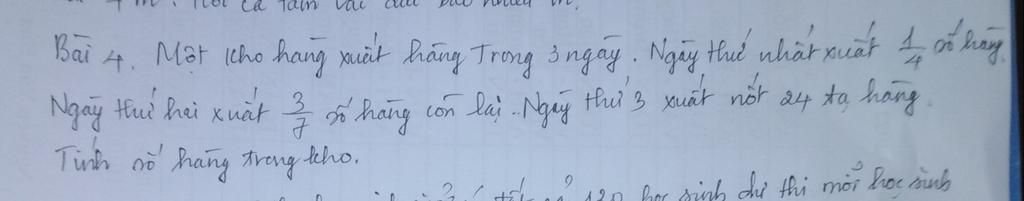 4 m. Hỏi cả tấm vải dài bao nhiêu m.
Bài 4. Một kho hàng xuất hàng Trong 3 ngày. Ngày thứ nhất xuất 1/4 số hàng.
Ngày thứ hai xuất 3/7 số hàng còn lại. Ngày thứ 3 xuất nốt 24 tạ hàng.
Tính số hàng trong kho.
120 học sinh dự thi mỗi học sinh